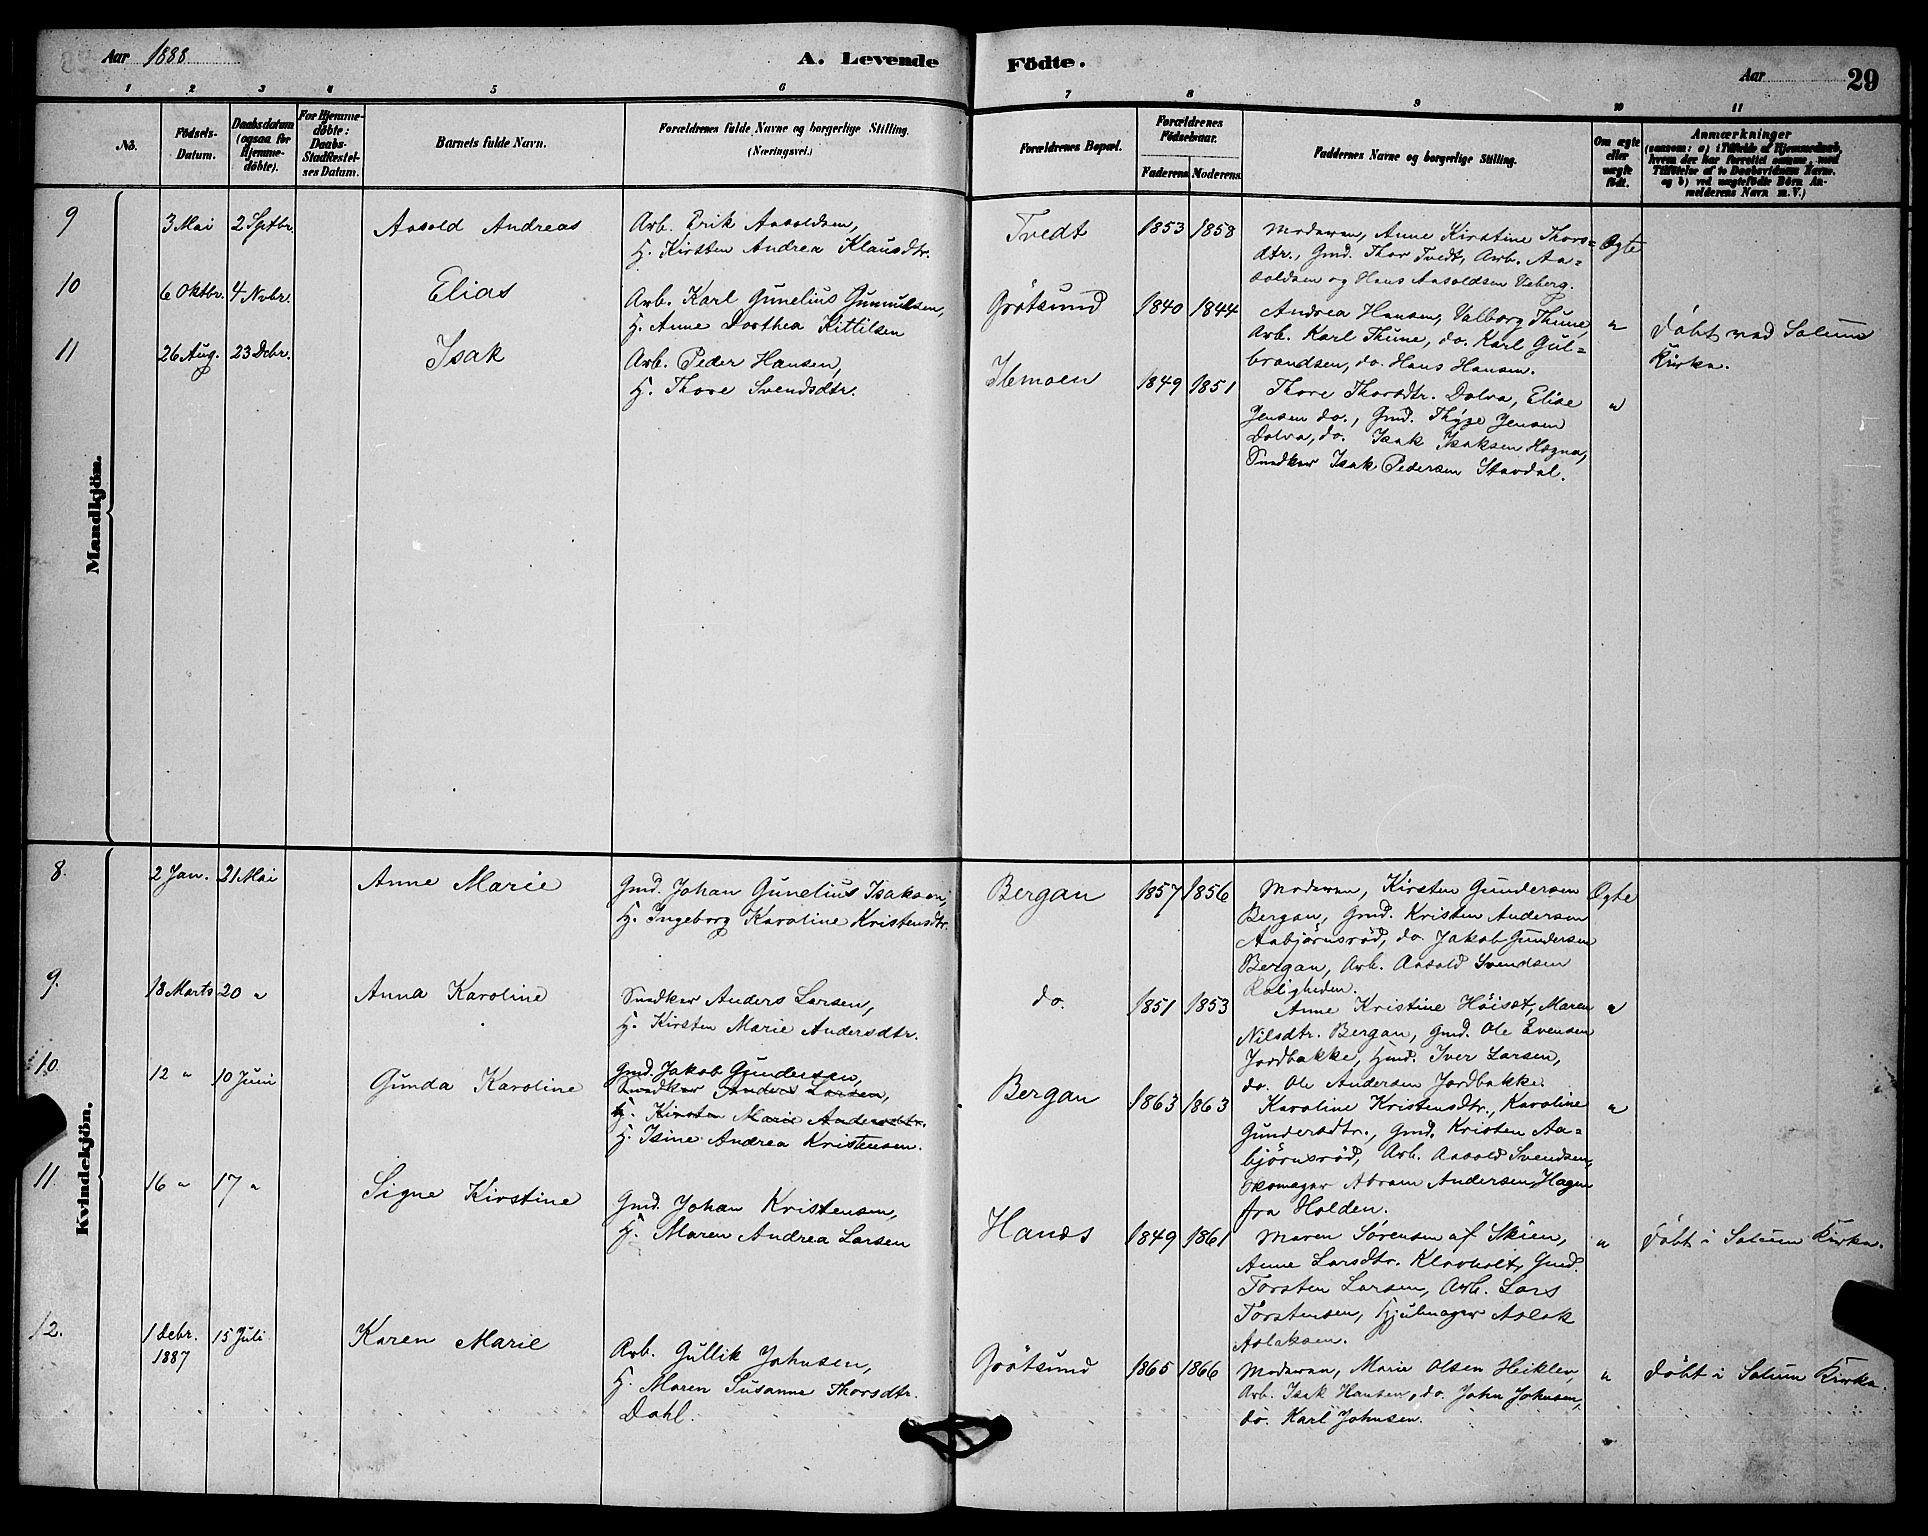 Aar 1888
A. Levende
Födte.
Aar
29
1 2 3 4 5 6 7 8 9 10 11
No.
Födsels-
Datum.
Daabsdatum
(ogsaa for
Hjemme-
döbte).
For Hjemme-
döbte:
Daabs-
Stadfæstel-
ses Datum.
Barnets fulde Navn.
Forældrenes fulde Navne og borgerlige Stilling.
(Næringsvei.)
Forældrenes Bopæl.
Forældrenes
Födselsaar.
Faderens Moderens
Faddernes Navne og borgerlige Stilling.
Om ægte
eller
uægte
födt.
Anmærkninger
(saasom: a) i Tilfælde af Hjemmedaab,
hvem der har forrettet samme, med
Tilföielse af to Daabsvidners Navne.
og b) ved uægtefödte Börn An-
melderens Navn m. V.)
Mandkjön.
9
3 Mai
2 Sptbr.
Aasold Andreas
Arb. Erik Aasoldsen,
H. Kirsten Andrea Klausdtr.
Tvedt
1853
1858
Moderen, Anne Kirstine Thors=
dtr., Gmd. Thor Tvedt, Arb. Aa=
soldsen og Hans Aasoldsen Veberg.
Ægte
10
6 Oktbr.
4 Nvbr.
Elias
Arb. Karl Gunelius Gunnulsen,
H. Anne Dorthea Kittilsen
Grötsund
1840
1844
Andrea Hansen, Valborg Thune,
Arb. Karl Thune, do. Karl Gul=
brandsen, do. Hans Hansen.
"
Döbt ved Solum
Kirke.
11
26 Aug.
23 Dcbr.
Isak
Arb. Peder Hansen,
H. Thore Svendsdtr.
Ilemoen
1849
1851
Thore Thorsdtr. Dolva, Elise
Jensen do., Gmd. Thyge Jensen
Dolva, do. Isak Isaksen Hogna,
Snedker Isak Pedersen Stavdal.
"
Kvindekjön.
8.
2 Jan.
21 Mai
Anne Marie
Gmd. Johan Gunelius Isaksen,
H. Ingeborg Karoline Kristensdtr.
Bergan
1857
1856
Moderen, Kirsten Gundersen
Bergan, Gmd. Kristen Andersen
Aabjörnsröd, do. Jakob Gundersen
Bergan, Arb. Aasold Svendsen
Roligheden.
Ægte
9.
18 Marts
20 "
Anna Karoline
Snedker Anders Larsen,
H. Kirsten Marie Andersdtr.
do.
1851
1853
Anne Kristine Höiset, Maren
Nilsdtr. Bergan, Gmd. Ole Evensen
Jordbakke, Hmd. Iver Larsen,
do. Ole Andersen Jordbakke
"
10.
12 "
10 Juni
Gunda Karoline
Gmd. Jakob Gundersen,
Snedker Anders Larsen,
H. Kirsten Marie Andersdtr.
H. Isine Andrea Kristensen.
Bergan
1863
1863
Karoline Kristensdtr., Karoline
Gundersdtr., Gmd. Kristen Aa=
björnsröd, Arb. Aasold Svendsen,
Skomager Abram Andersen Hagen
fra Holden.
"
11.
16 "
17 "
Signe Kirstine
Gmd. Johan Kristensen,
H. Maren Andrea Larsen
Hanæs
1849
1861
Maren Sørensen af Skien,
Anne Larsdtr. Klovholt, Gmd.
Torsten Larsen, Arb. Lars
Torstensen, Hjulmager Aslak
Aslaksen.
"
Döbt i Solum Kirke.
12.
1 Debr.
1887
15 Juli
Karen Marie
Arb. Gullik Johnsen,
H. Maren Susanne Thorsdtr.
Dahl.
Grötsund
1865
1866
Moderen, Marie Olsen Heikler,
Arb. Isak Hansen, do. John Johnsen,
do. Karl Johnsen.
"
Döbt i Solum Kirke.